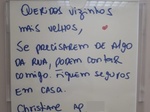 QUERIDOS VIZINHOS
MAIS VELHOS,
SE PRECISAREM DE ALGO
DA RUA, PODEM CONTAR
COMIGO. FIQUEM SEGUROS
EM CASA.
CHRISTIANE AP